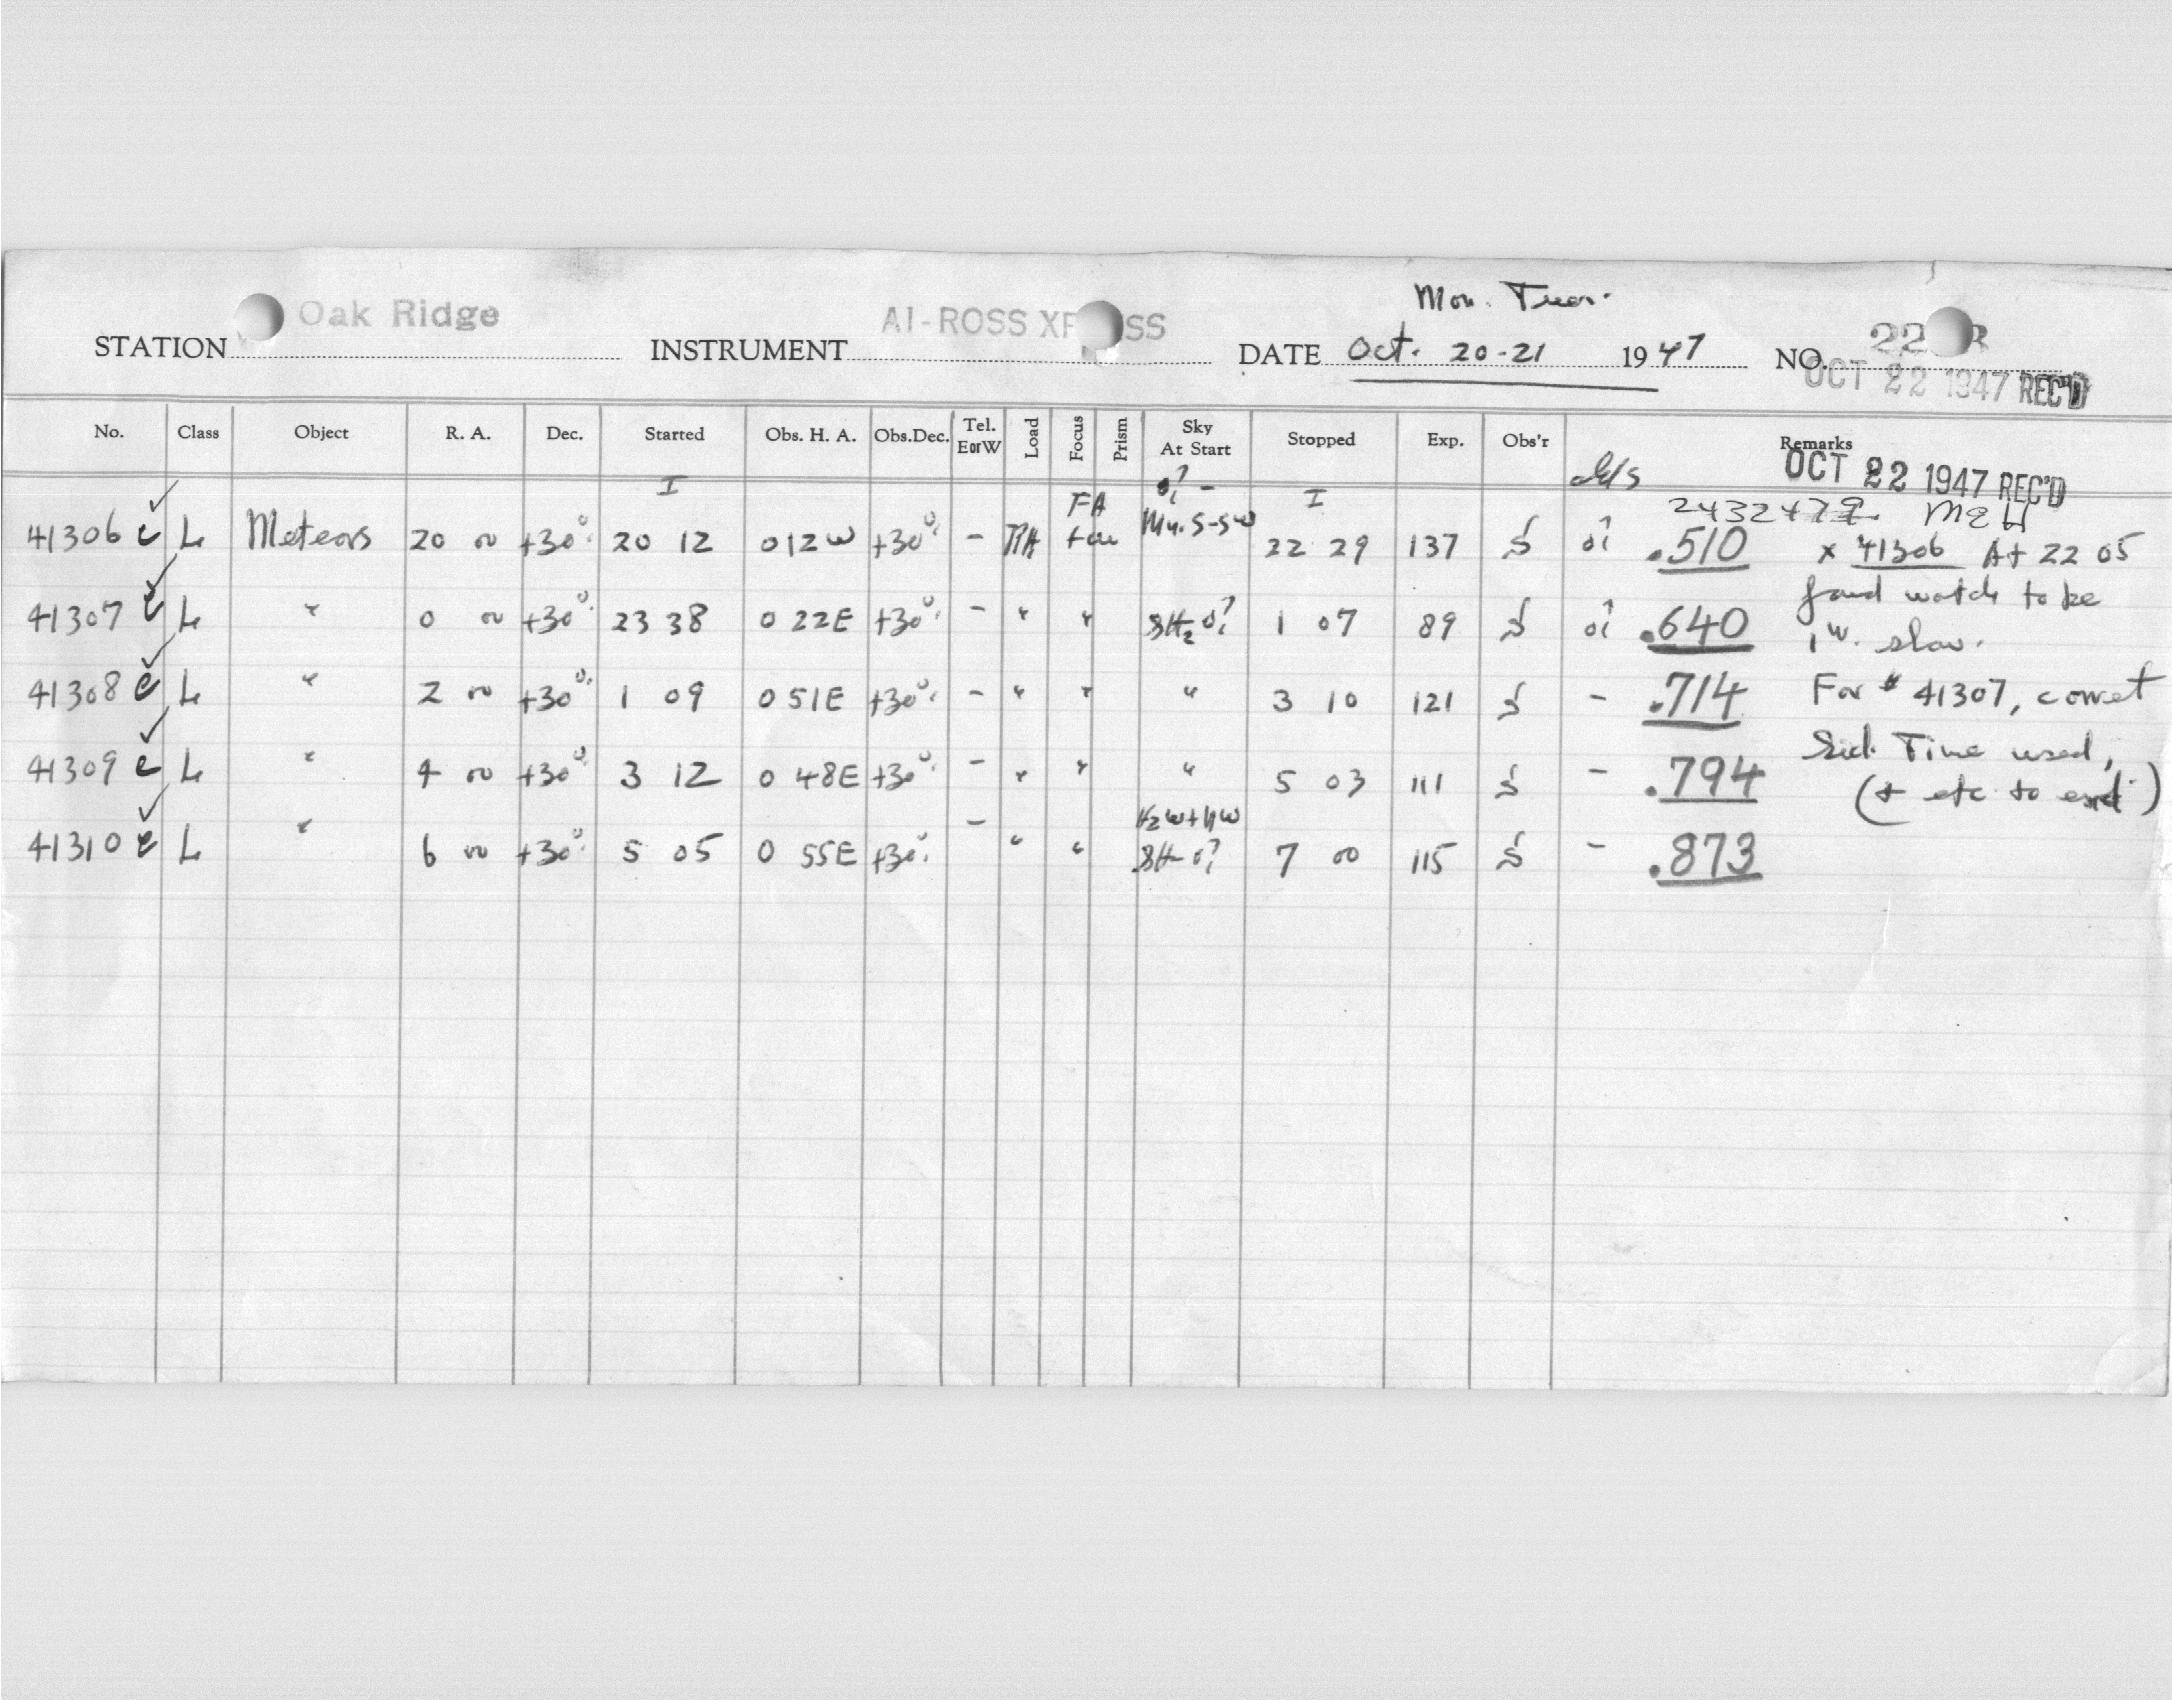 Mon. Tues.
STATION Oak Ridge INSTRUMENT AI-ROSS XPRESS DATE Oct. 20-21 1947 NO.
OCT 22 1947 REC'D
No. Class Object R. A. Dec. Started Obs. H. A. Obs.Dec. Tel. EorW Load Focus Prism Sky At Start Stopped Exp. Obs'r Remarks
OCT 22 1947 REC'D
I FA I 243247 MEH
41306 L Meteors 20 00 +30° 20 12 0 12 W +30° - 22 29 137 .510 x 41306 At 22 05
found watch to be
41307 L " 0 00 +30° 23 38 0 22E +30° - " " 1 07 89 .640 1 slow.
41308 L " 2 00 +30° 1 09 0 51E +30° - " " " 3 10 121 - .714 For # 41307, correct
Sid. Time used,
41309 L " 4 00 +30° 3 12 0 48E +30° - " " " 5 03 111 - .794 (+ etc to end)
41310 L " 6 00 +30° 5 05 0 55E +30° - " " 7 00 115 - .873